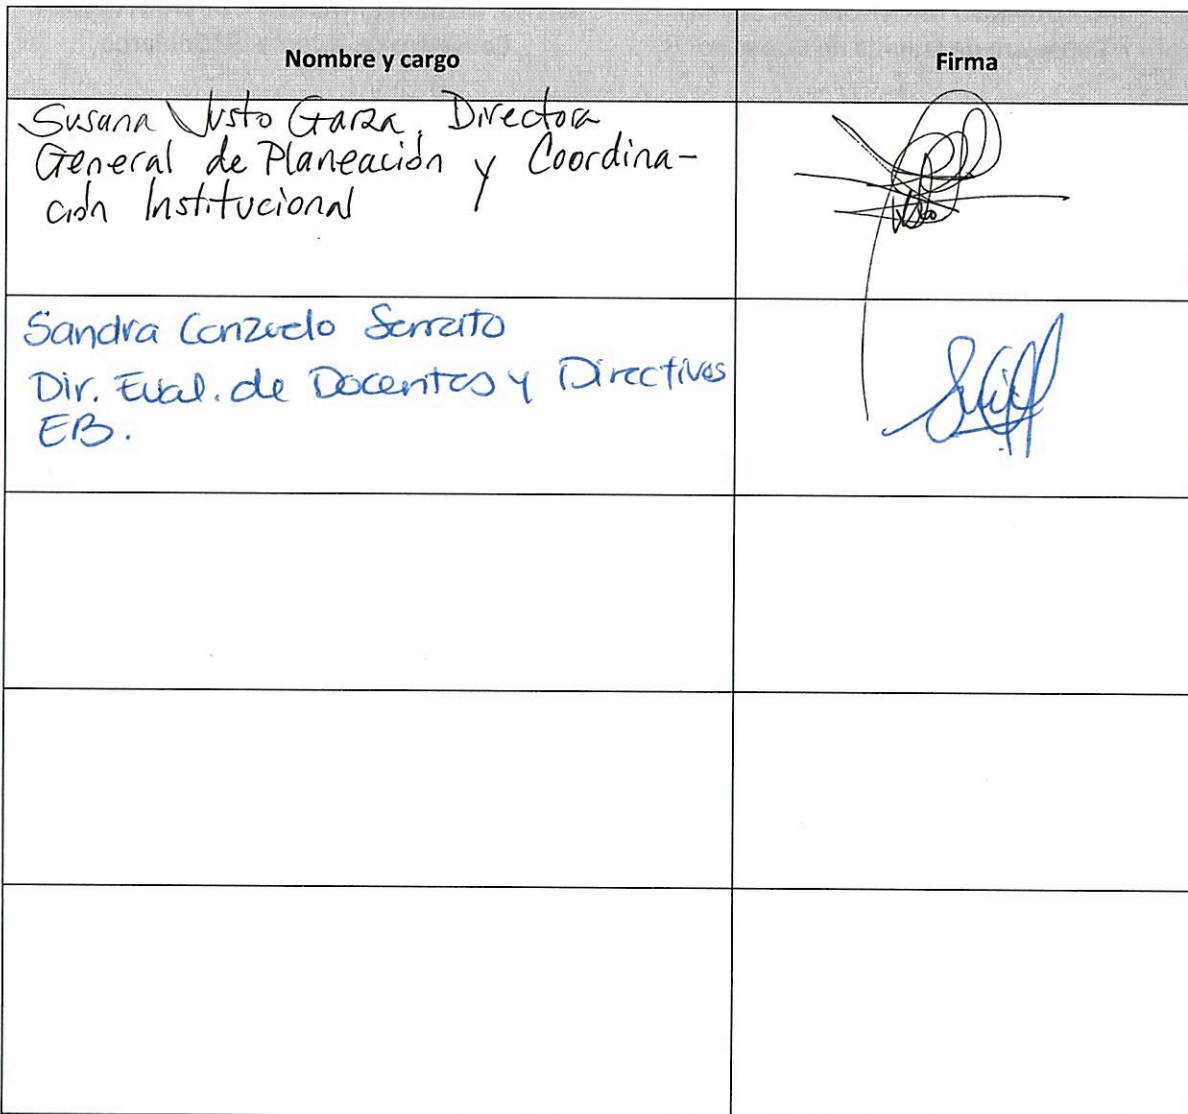 Nombre y cargo
Firma
Susana Justo Garza, Directora
General de Planeación y Coordina-
ción Institucional
Sandra Conzuelo Serrato
Dir. Eval. de Docentes y Directivos
EB.